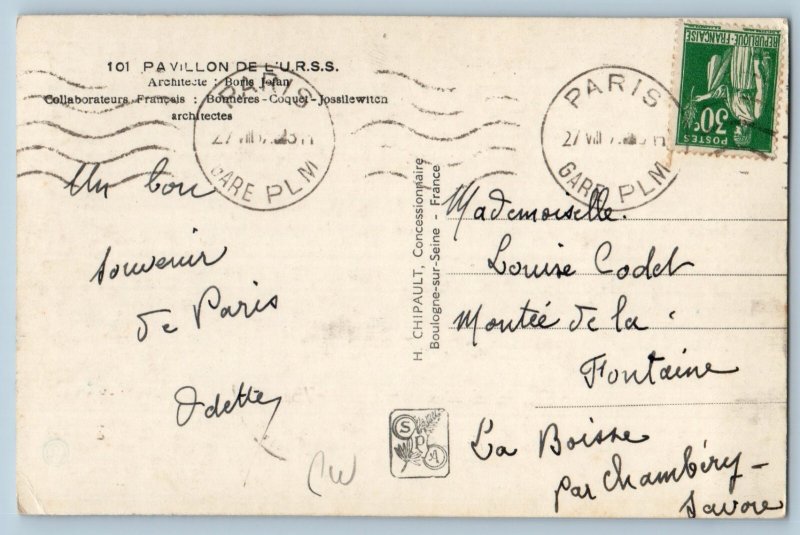 101 PAVILLON DE L'U.R.S.S.
Architecte : Boris Jofan
Collaborateurs Français : Bonnères-Coquet-Jossilewitch
architectes
PARIS
GARE PLM
PARIS
27 VIII
GARE PLM
REPUBLIQUE-FRANÇAISE
POSTES
30c
Un bon
souvenir
de Paris
Odette
H. CHIPAULT, Concessionnaire
Boulogne-sur-Seine - France
SPA
Mademoiselle.
Louise Codet
Montée de la
Fontaine
La Boisse
par Chambéry-
Savoie